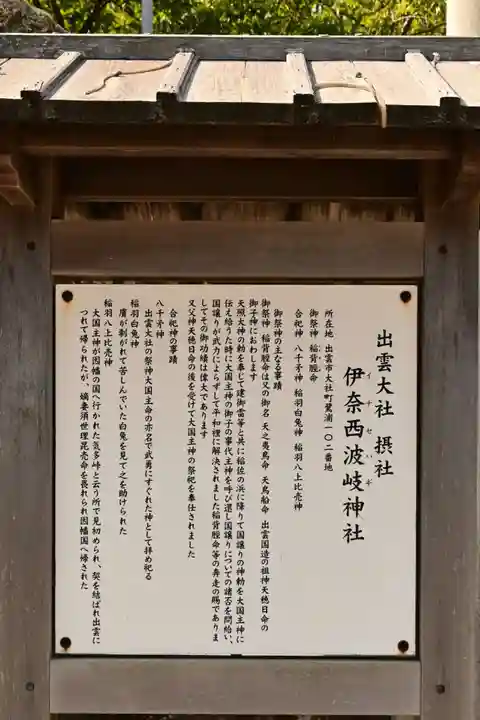 出雲大社 摂社
伊奈西波岐神社
イナセハギ
所在地 出雲市大社町鷺浦一〇二番地
御祭神 稲背脛命
合祀神 八千矛神 稲羽白兎神 稲羽八上比売神
御祭神の主なる事蹟
御祭神 稲背脛命は又の御名 天之夷鳥命 天鳥船命 出雲国造の祖神天穂日命の
御子神におわします
天照大神の勅を奉じて建御雷等と共に稲佐の浜に降りて国譲りの神勅を大国主神に
伝え給うた時に大国主神の御子の事代主神を呼び還し国譲りについての諾否を問給い、
国譲りが武力によらずして平和裡に解決されました稲背脛命等の奔走の賜でありま
してその御功績は偉大であります
又父神天穂日命の後を受けて大国主神の祭祀を奉仕されました
合祀神の事蹟
八千矛神
出雲大社の祭神大国主命の亦名で武勇にすぐれた神として拝め祀る
稲羽白兎神
膚が剥がれて苦しんでいた白兎を見て之を助けられた
稲羽八上比売神
大国主神が因幡の国へ行かれた気多峠と云う所で見初められ、契を結ばれ出雲に
つれて帰られたが、嫡妻須世理毘売命を畏れられ因幡国へ帰された